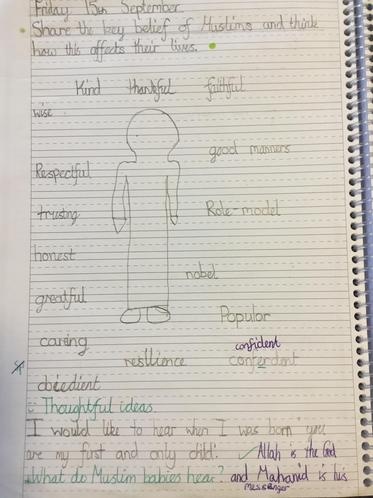 Friday 15th September
Share the key belief of Muslims and think
how this affects their lives.
Kind thankful faithful
wise
good manners
Respectful
trusting
Role-model
honest
nobel
greatful
Popular
caring
confident
resllience conferdent
obiedient
Thoughtful ideas.
I would like to hear when I was born you
are my first and only child.
Allah is the God
What do Muslim babies hear? and Mahamid is his
messanger